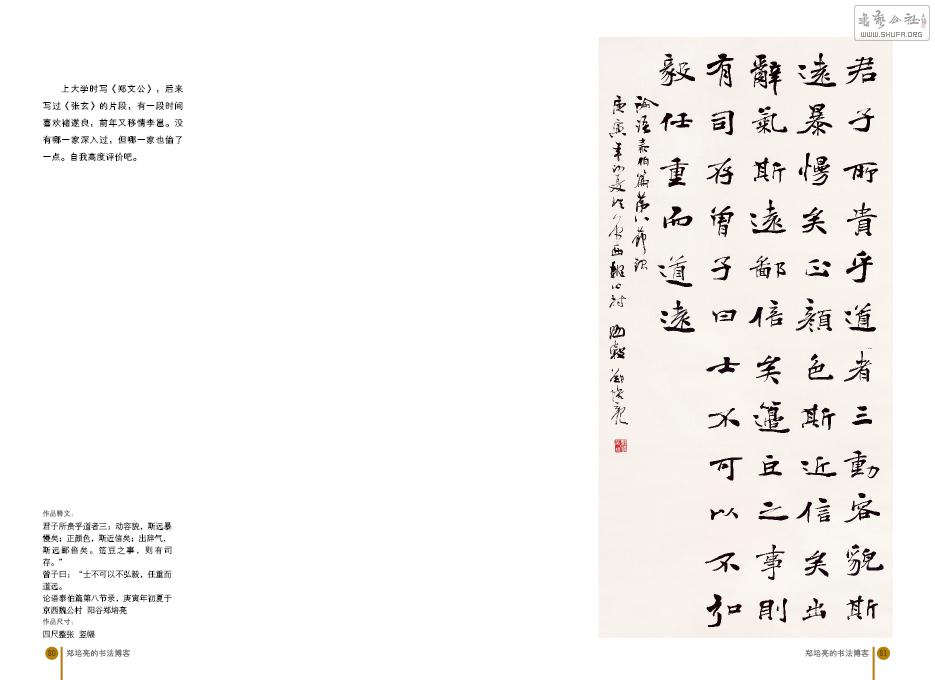 書藝公社
WWW.SHUFA.ORG
上大学时写《郑文公》，后来
写过《张玄》的片段，有一段时间
喜欢褚遂良，前年又移情李邕。没
有哪一家深入过，但哪一家也偷了
一点。自我高度评价吧。
作品释文：
君子所贵乎道者三：动容貌，斯远暴
慢矣；正颜色，斯近信矣；出辞气，
斯远鄙倍矣。笾豆之事，则有司
存。”
曾子曰：“士不可以不弘毅，任重而
道远。
论语泰伯篇第八节录，庚寅年初夏于
京西魏公村 阳谷郑培亮
作品尺寸：
四尺整张 竖幅
80 郑培亮的书法博客
君子所貴乎道者三動容貌斯
遠暴慢矣正顔色斯近信矣出
辭氣斯遠鄙倍矣籩豆之事則
有司存曾子曰士不可以不弘
毅任重而道遠
論語泰伯篇第八節録
庚寅年初夏於京西魏公村 陽穀鄭培亮
郑培亮的书法博客 81